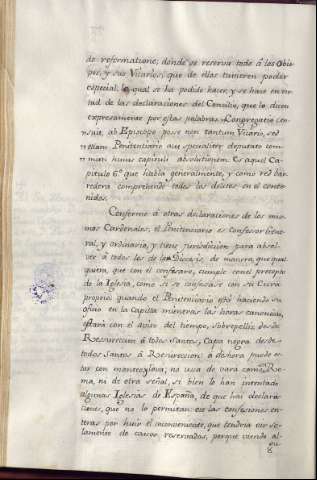 de reformatione; donde se reserva todo â los Obis-
pos, y sus Vicarios, que de ellos tuvieren poder
especial, lo qual se ha podido hacer, y se hace en vir-
tud de las declaraciones del Concilio, que lo dicen
expresamente por estas palabras. Congregatio cen-
suit ab Episcopo posse non tantum Vicario, sed
etiam Penitentiario aut specialiter deputato com-
huius capituli absolutionem. Es aquel Ca-
pitulo 6º que habla generalmente, y como red bar-
redera comprehende todos los delitos en el conte-
nidos.
Conforme â otras declaraciones de los mis-
mos Cardenales, el Penitenciario es confesor
y ordinario, y tiene jurisdiccion para absol-
ver â todos los de la Diocesis, de manera, que qual-
quiera, que con el confesare, cumple con el precepto
de la Iglesia, como si se confesara con su Cura
proprio: quando el Penitenciario está haciendo su
oficio en la Capilla mientras las horas canonicas,
estará con el avito del tiempo, sobrepelliz desde
Resurreccion â todos Santos, Capa negra desde
todos Santos â Resurreccion: â deshora puede es-
tar con manteo, y lova; no usa de vara como en Ro-
ma, ni de otra señal, si bien lo han intentado
algunas Iglesias de España, de que hai declara-
ciones, que no lo permitan en las confesiones en-
teras por huir el inconveniente, que tendria oir so-
lamente de casos reservados, porque viendo al-